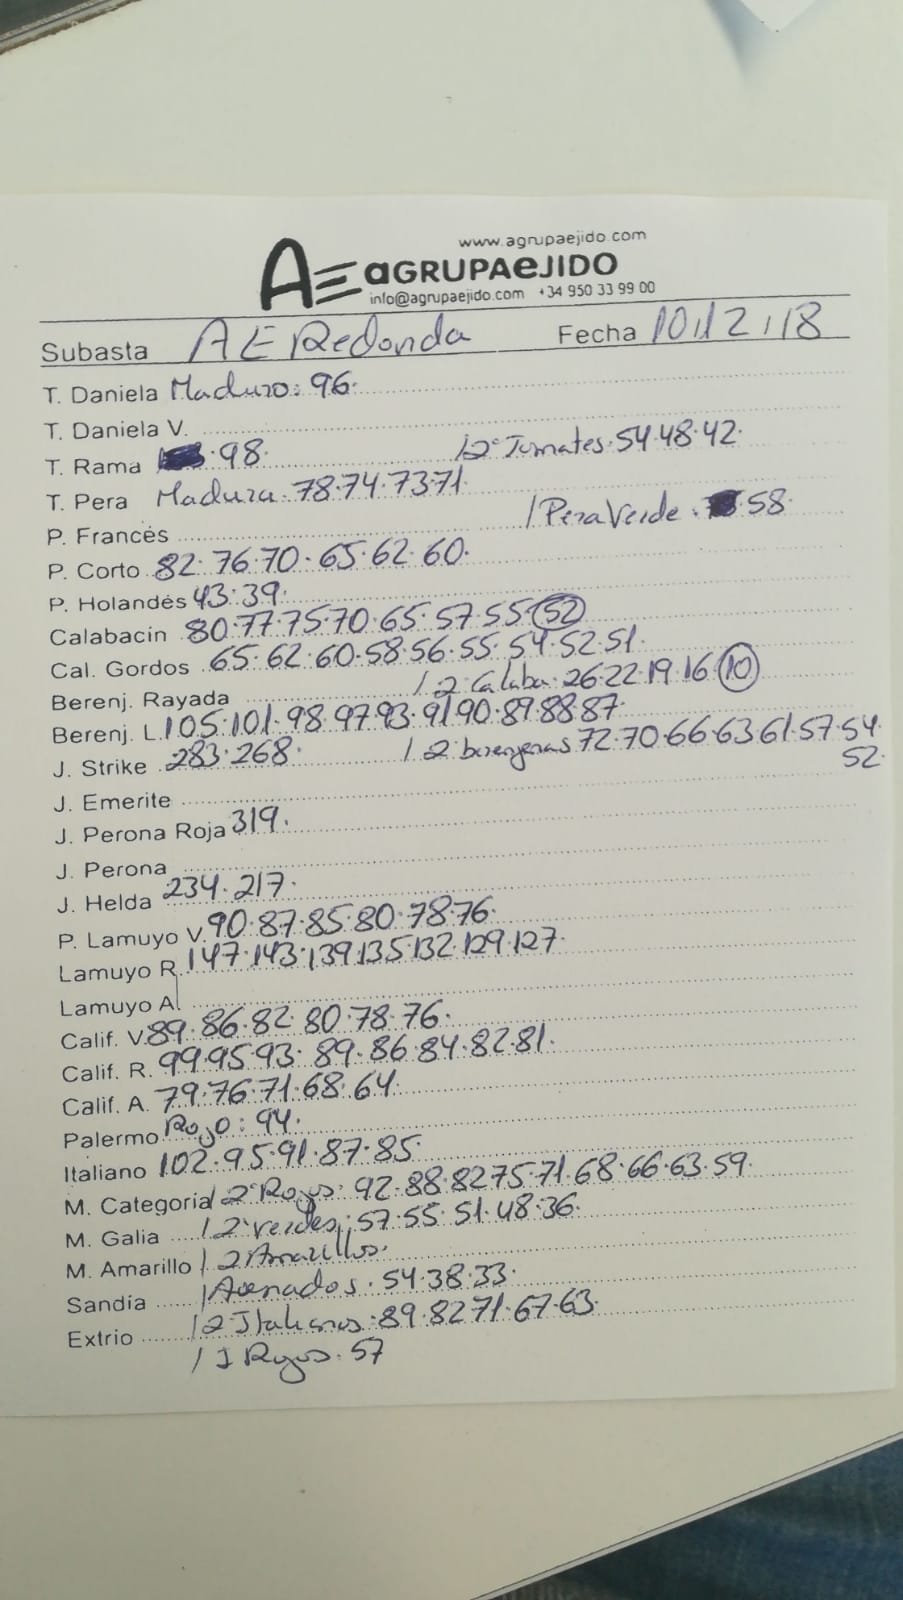 www.agrupaejido.com
AE aGRUPAeJIDO
info@agrupaejido.com +34 950 33 99 00
Subasta AE Redonda Fecha 10/12/18
T. Daniela Maduro: 96.
T. Daniela V.
T. Rama 98. /2ª Tomates. 54.48.42.
T. Pera Madura. 78.74.73.71.
P. Francés / Pera Verde. 58.
P. Corto 82.76.70.65.62.60.
P. Holandés 43.39.
Calabacin 80.77.75.70.65.57.55.52
Cal. Gordos 65.62.60.58.56.55.54.52.51.
Berenj. Rayada / 2 Calaba. 26.22.19.16.10
Berenj. L. 105.101.98.97.93.91.90.89.88.87.
J. Strike 283.268. / 2 berengenas 72.70.66.63.61.57.54.
52.
J. Emerite
J. Perona Roja 319.
J. Perona
J. Helda 234.217.
P. Lamuyo V. 90.87.85.80.78.76.
Lamuyo R. 147.143.139.135.132.129.127.
Lamuyo A.
Calif. V. 89.86.82.80.78.76.
Calif. R. 99.95.93.89.86.84.82.81.
Calif. A. 79.76.71.68.64.
Palermo Rojo: 94.
Italiano 102.95.91.87.85.
M. Categoria / 2ª Rojos. 92.88.82.75.71.68.66.63.59.
M. Galia / 2ª Verdes. 57.55.51.48.36.
M. Amarillo / 2 Amarillos.
Sandía / Asenados. 54.38.33.
Extrio / 2 Italianos. 89.82.71.67.63.
/ I Rojos. 57